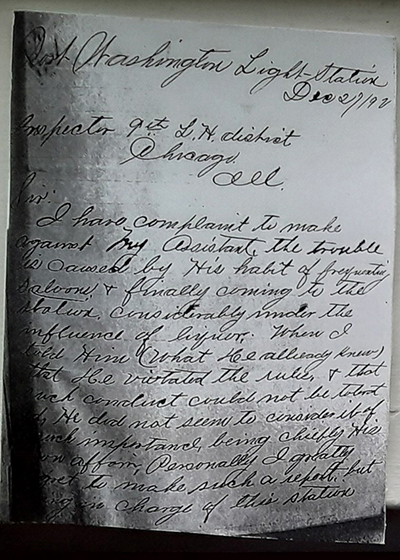 Port Washington Light-Station
Dec 27/19
Inspector 9th L. H. district
Chicago.
Ill.
Sir:
I have complaint to make
against My Assistant, the trouble
is caused by His habit of frequenting
Saloons, & finally coming to the
station, considerably under the
influence of liquor. When I
told Him (What He allready knew)
that He violated the rules, & that
such conduct could not be
He did not seem to consider it of
much importance, being chiefly His
own affair, Personally I greatly
regret to make such a report, but
being in charge of this station